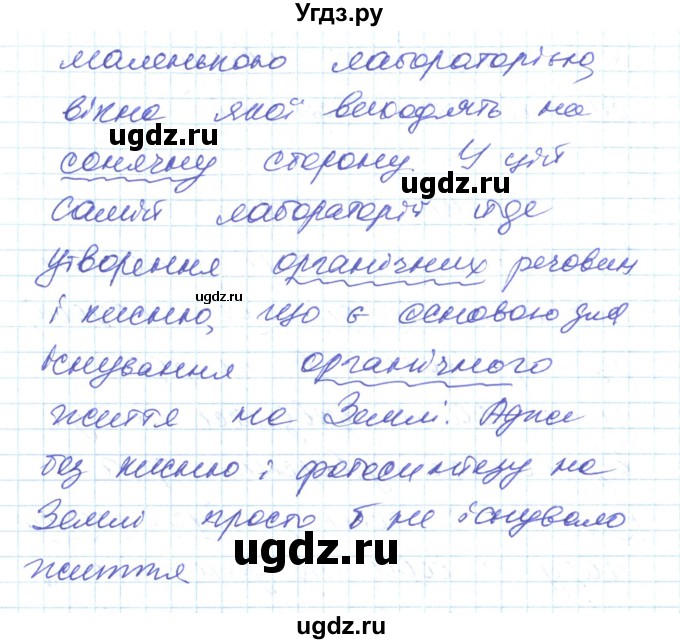 Угдз.ру
маленькою лабораторією,
вікна якої виходять на
ugdz.ru
сонячну сторону У цій
ugdz.ru
самій лабораторії йде
утворення органічних речовин
ugdz.ru
і кисню, що є основою для
існування органічного
життя на Землі. Адже
без кисню і фотосинтезу на
Землі просто б не існувало
ugdz.ru
життя
ugdz.ru